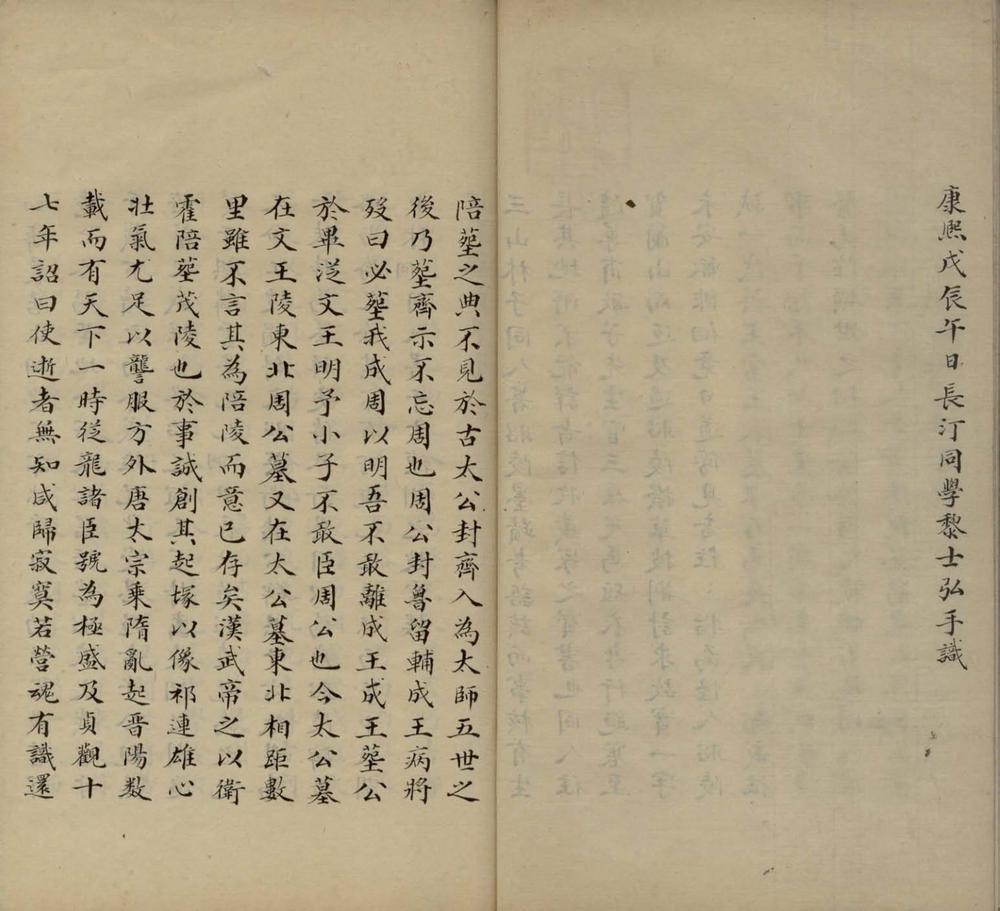 康熙戊辰午日長汀同學黎士弘手識
陪塟之典不見於古太公封齊入為太師五世之
後乃塟齊示不忘周也周公封魯留輔成王病將
歿曰必塟我成周以明吾不敢離成王成王塟公
於畢從文王明予小子不敢臣周公也今太公墓
在文王陵東北周公墓又在太公墓東北相距數
里雖不言其為陪陵而意已存矣漢武帝之以衛
霍陪塟茂陵也於事誠創其起塚以像祁連雄心
壯氣尤足以讋服方外唐太宗乘隋亂起晋陽数
載而有天下一時從龍諸臣號為極盛及貞觀十
七年詔曰使逝者無知咸歸寂寞若營魂有識還